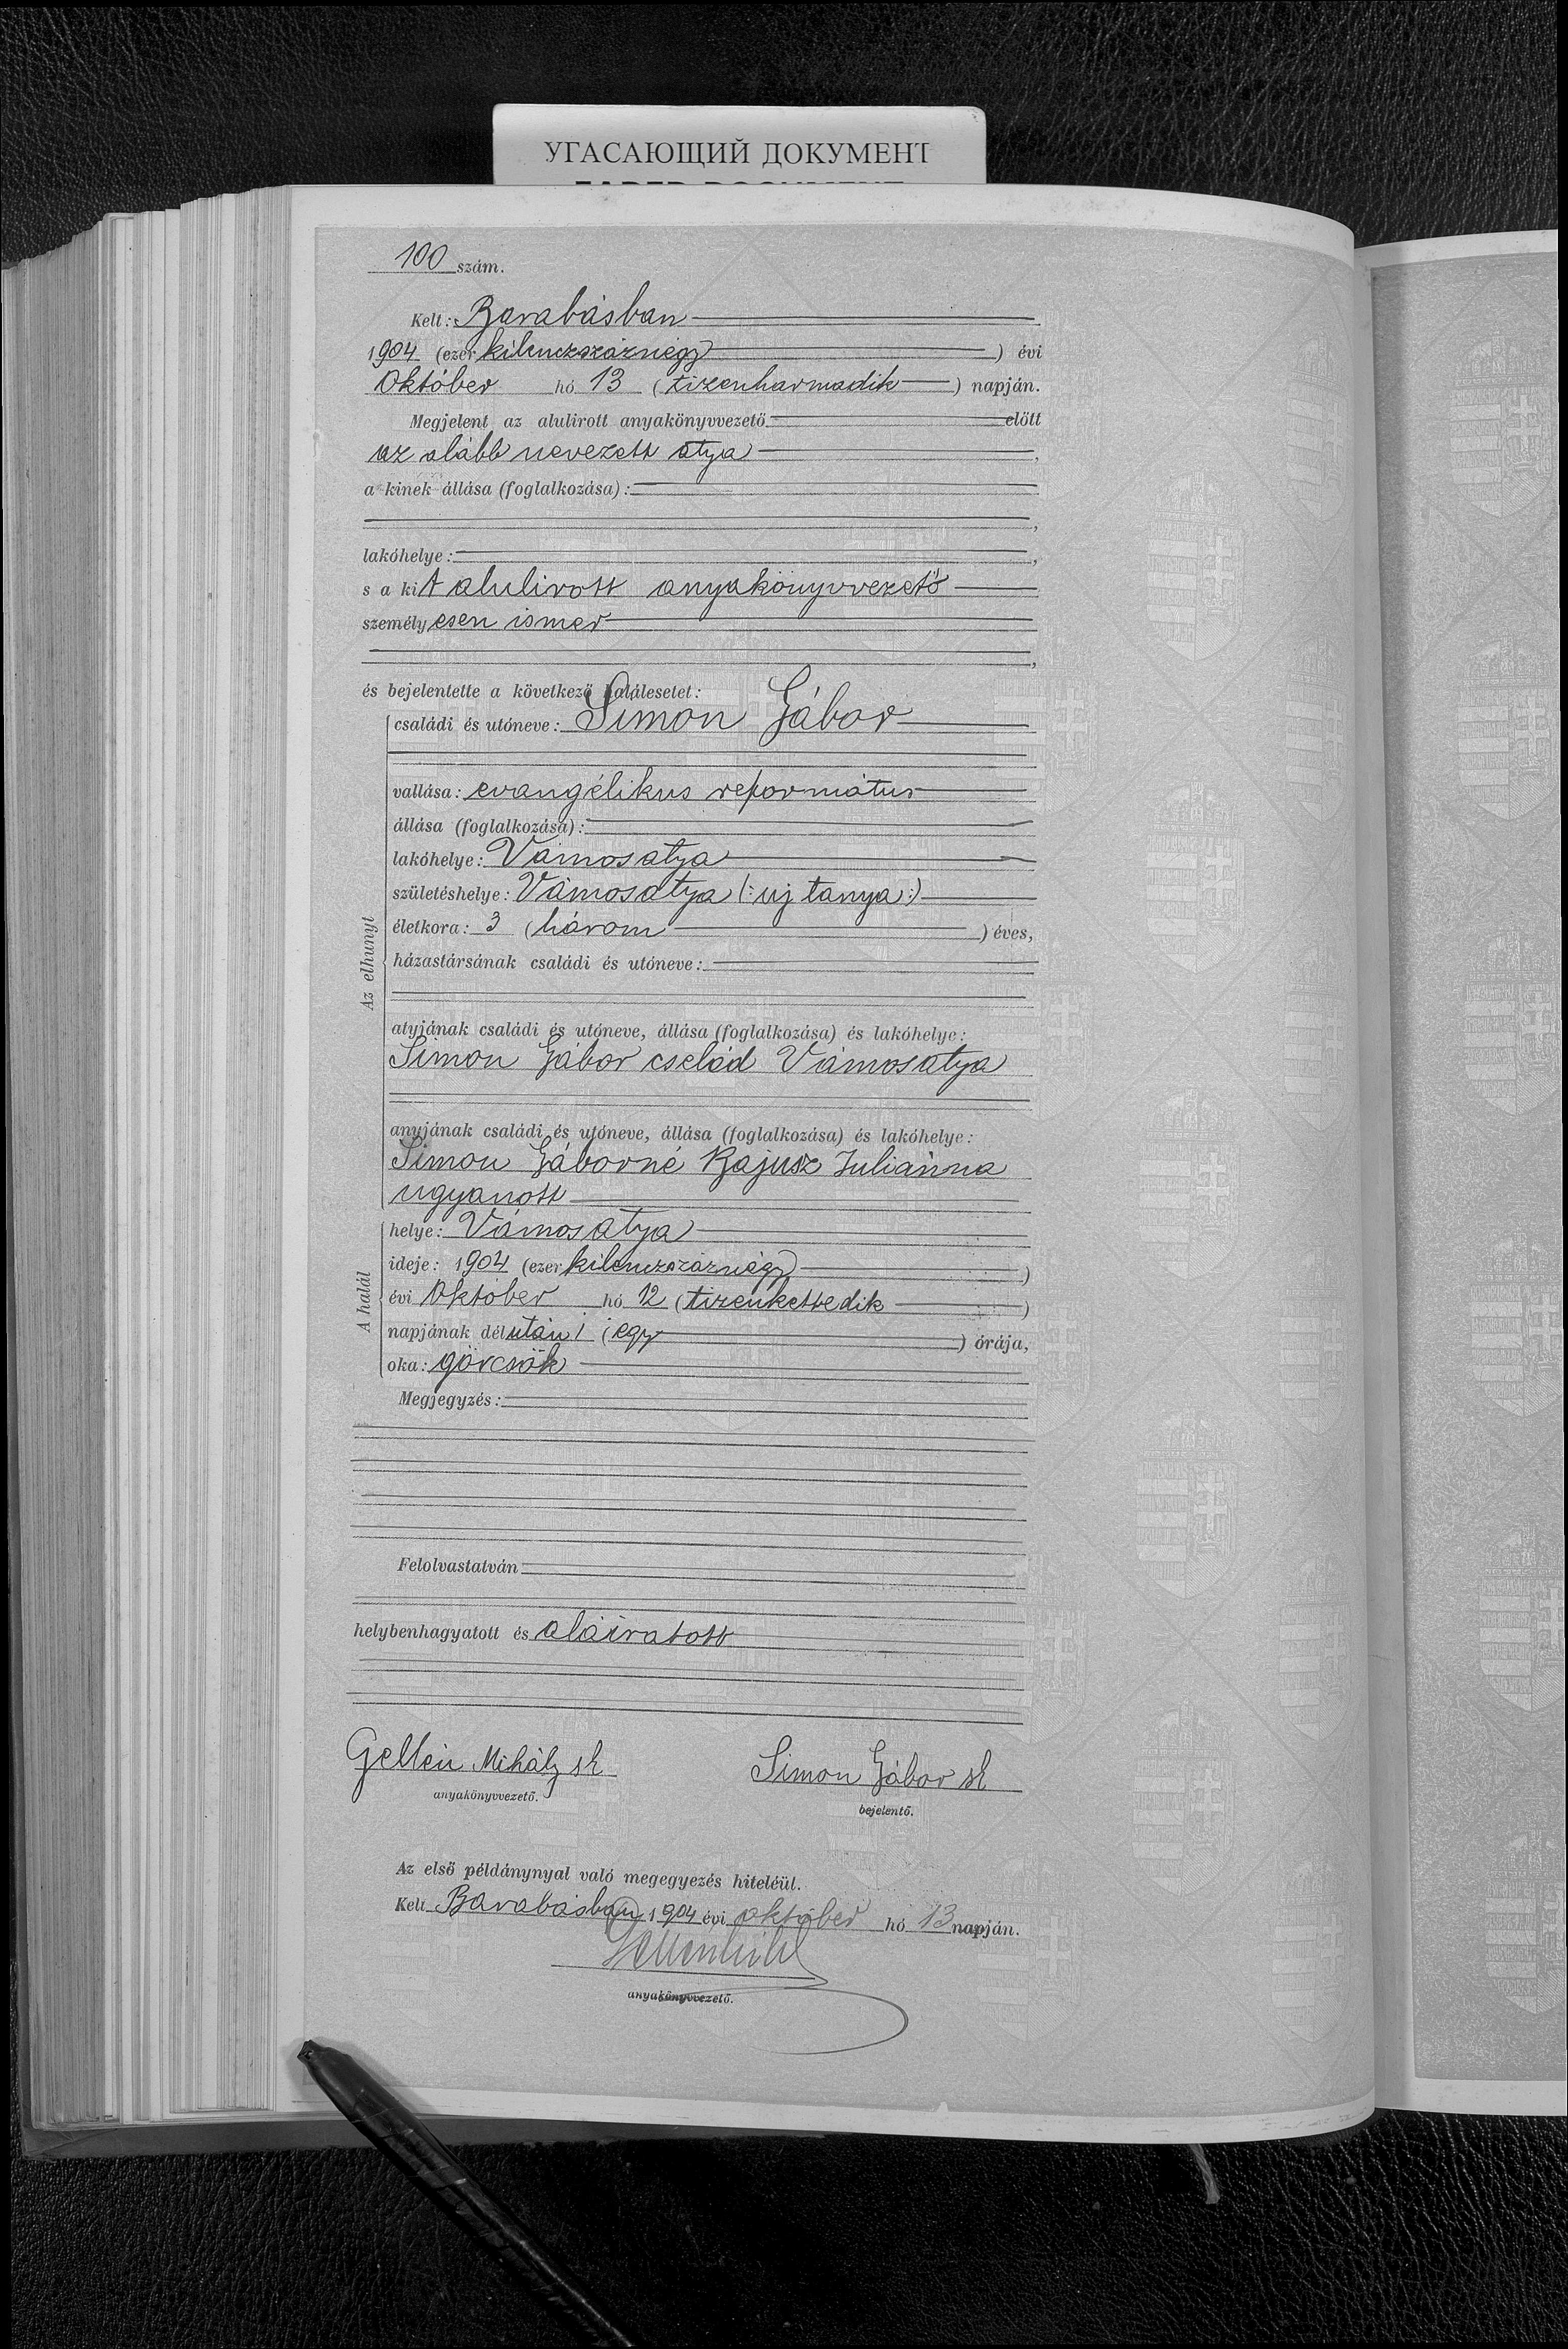 УГАСАЮЩИЙ ДОКУМЕНТ
100 szám.
Kelt: Barabásban
1904 (ezer kilenczszáznégy) évi
Október hó 13 (tizenharmadik) napján.
Megjelent az alulirott anyakönyvvezető előtt
az alább nevezett atya,
a kinek állása (foglalkozása):
lakóhelye:
s a kit alulirott anyakönyvvezető
személyesen ismer
és bejelentette a következő halálesetet:
családi és utóneve: Simon Gábor
vallása: evangélikus református
állása (foglalkozása):
lakóhelye: Vámosatya
születéshelye: Vámosatya (: uj tanya :)
életkora: 3 (három) éves,
házastársának családi és utóneve:
Az elhunyt
atyjának családi és utóneve, állása (foglalkozása) és lakóhelye:
Simon Gábor cseléd Vámosatya
anyjának családi és utóneve, állása (foglalkozása) és lakóhelye:
Simon Gáborné Bajusz Julianna
ugyanott
helye: Vámosatya
ideje: 1904 (ezer kilenczszáznégy)
évi Október hó 12 (tizenkettedik)
A halál
napjának délután 1 (egy) órája,
oka: görcsök
Megjegyzés:
Felolvastatván
helybenhagyatott és aláiratott
Gellén Mihály sk Simon Gábor sk
anyakönyvvezető. bejelentő.
Az első példánynyal való megegyezés hiteléül.
Kelt Barabásban 1904 évi október hó 13 napján.
anyakönyvvezető.